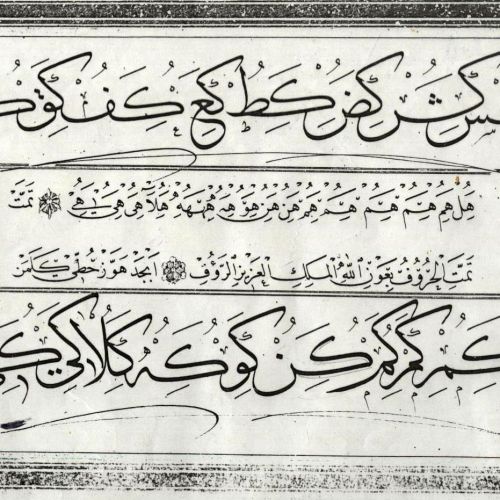 كشر كض كط كع كف كق
هل هم هم هم هم هم هن هن هو هه همهه هلا هي هي هي تمت
تمت الحروف بعون الله الملك العزيز الرؤف ابجد هوز حطي كلمن
كمر كم كم كن كو كه كلا كي